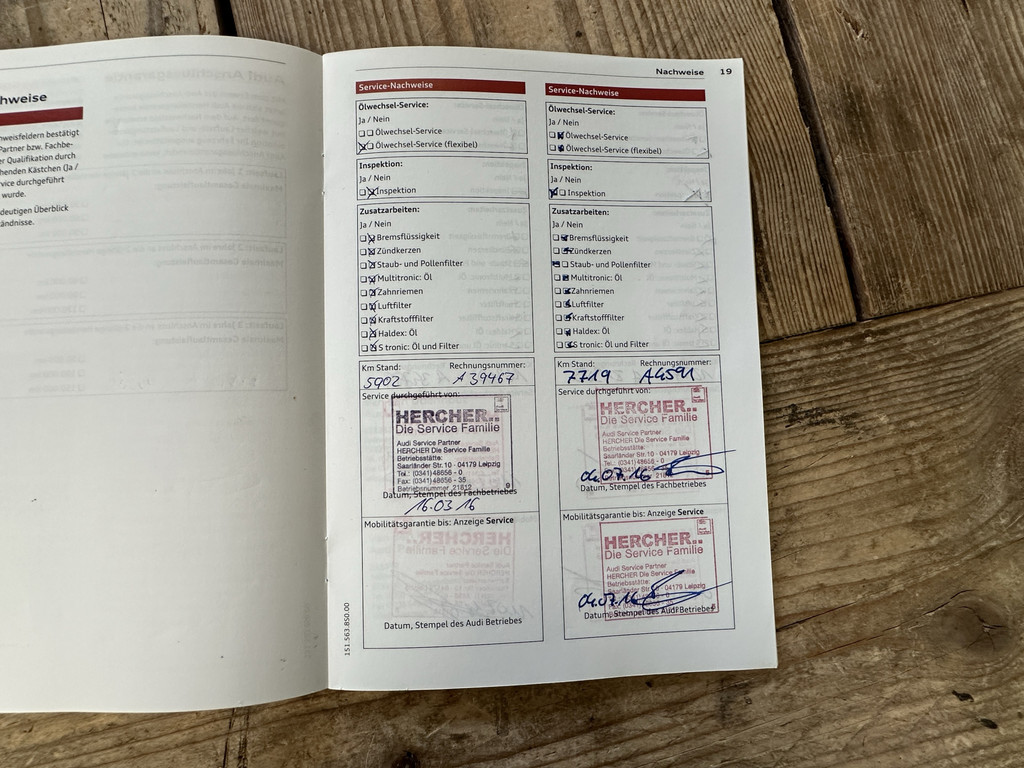 hweise
weisfeldern bestätigt
Partner bzw. Fachbe-
er Qualifikation durch
henden Kästchen (Ja /
vice durchgeführt
wurde.
deutigen Überblick
ändnisse.
Nachweise 19
Service-Nachweise
Ölwechsel-Service:
Ja / Nein
Ölwechsel-Service
Ölwechsel-Service (flexibel)
Inspektion:
Ja / Nein
Inspektion
Zusatzarbeiten:
Ja / Nein
Bremsflüssigkeit
Zündkerzen
Staub- und Pollenfilter
Multitronic: Öl
Zahnriemen
Luftfilter
Kraftstofffilter
Haldex: Öl
S tronic: Öl und Filter
Km Stand: Rechnungsnummer:
5902 A 39467
Service durchgeführt von:
HERCHER..
Die Service Familie
Audi Service Partner
HERCHER Die Service Familie
Betriebsstätte:
Saarländer Str.10 · 04179 Leipzig
Tel.: (0341) 48656 - 0
Fax: (0341) 48656 - 35
Betriebsnummer 21812 9
Datum, Stempel des Fachbetriebes
16.03.16
Mobilitätsgarantie bis: Anzeige Service
Datum, Stempel des Audi Betriebes
151.563.850.00
Service-Nachweise
Ölwechsel-Service:
Ja / Nein
Ölwechsel-Service
Ölwechsel-Service (flexibel)
Inspektion:
Ja / Nein
Inspektion
Zusatzarbeiten:
Ja / Nein
Bremsflüssigkeit
Zündkerzen
Staub- und Pollenfilter
Multitronic: Öl
Zahnriemen
Luftfilter
Kraftstofffilter
Haldex: Öl
S tronic: Öl und Filter
Km Stand: Rechnungsnummer:
7719
Service durchgeführt von:
HERCHER..
Die Service Familie
Audi Service Partner
HERCHER Die Service Familie
Betriebsstätte:
Saarländer Str.10 · 04179 Leipzig
Tel.: (0341) 48656 - 0
04.07.16
Datum, Stempel des Fachbetriebes
Mobilitätsgarantie bis: Anzeige Service
HERCHER..
Die Service Familie
Audi Service Partner
HERCHER Die Service Familie
Betriebsstätte:
Saarländer Str.10 · 04179 Leipzig
04.07.16
Datum, Stempel des Audi Betriebes